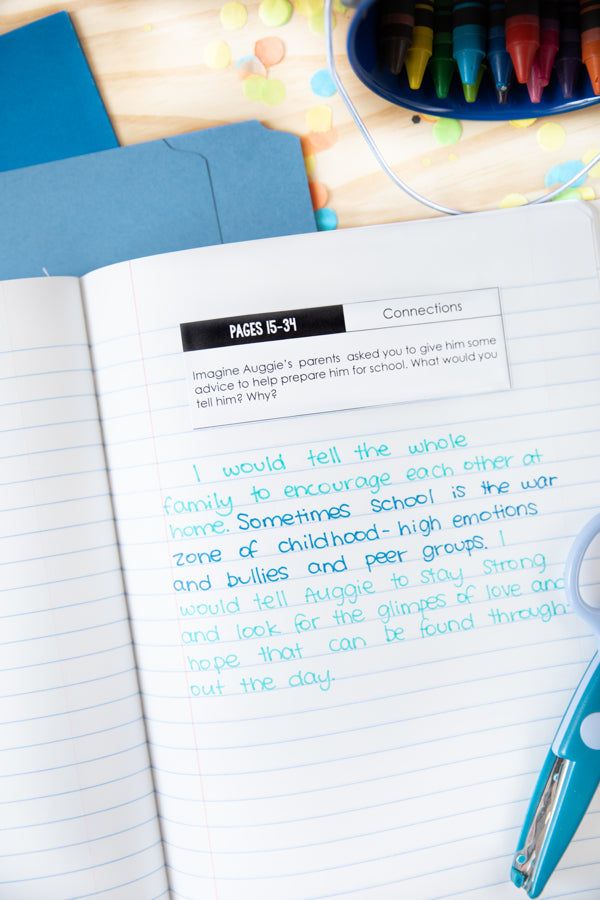 PAGES 15-34
Connections
Imagine Auggie's parents asked you to give him some
advice to help prepare him for school. What would you
tell him? Why?
I would tell the whole
family to encourage each other at
home. Sometimes school is the war
zone of childhood- high emotions
and bullies and peer groups. I
would tell Auggie to stay strong
and look for the glimpes of love and
hope that can be found through-
out the day.